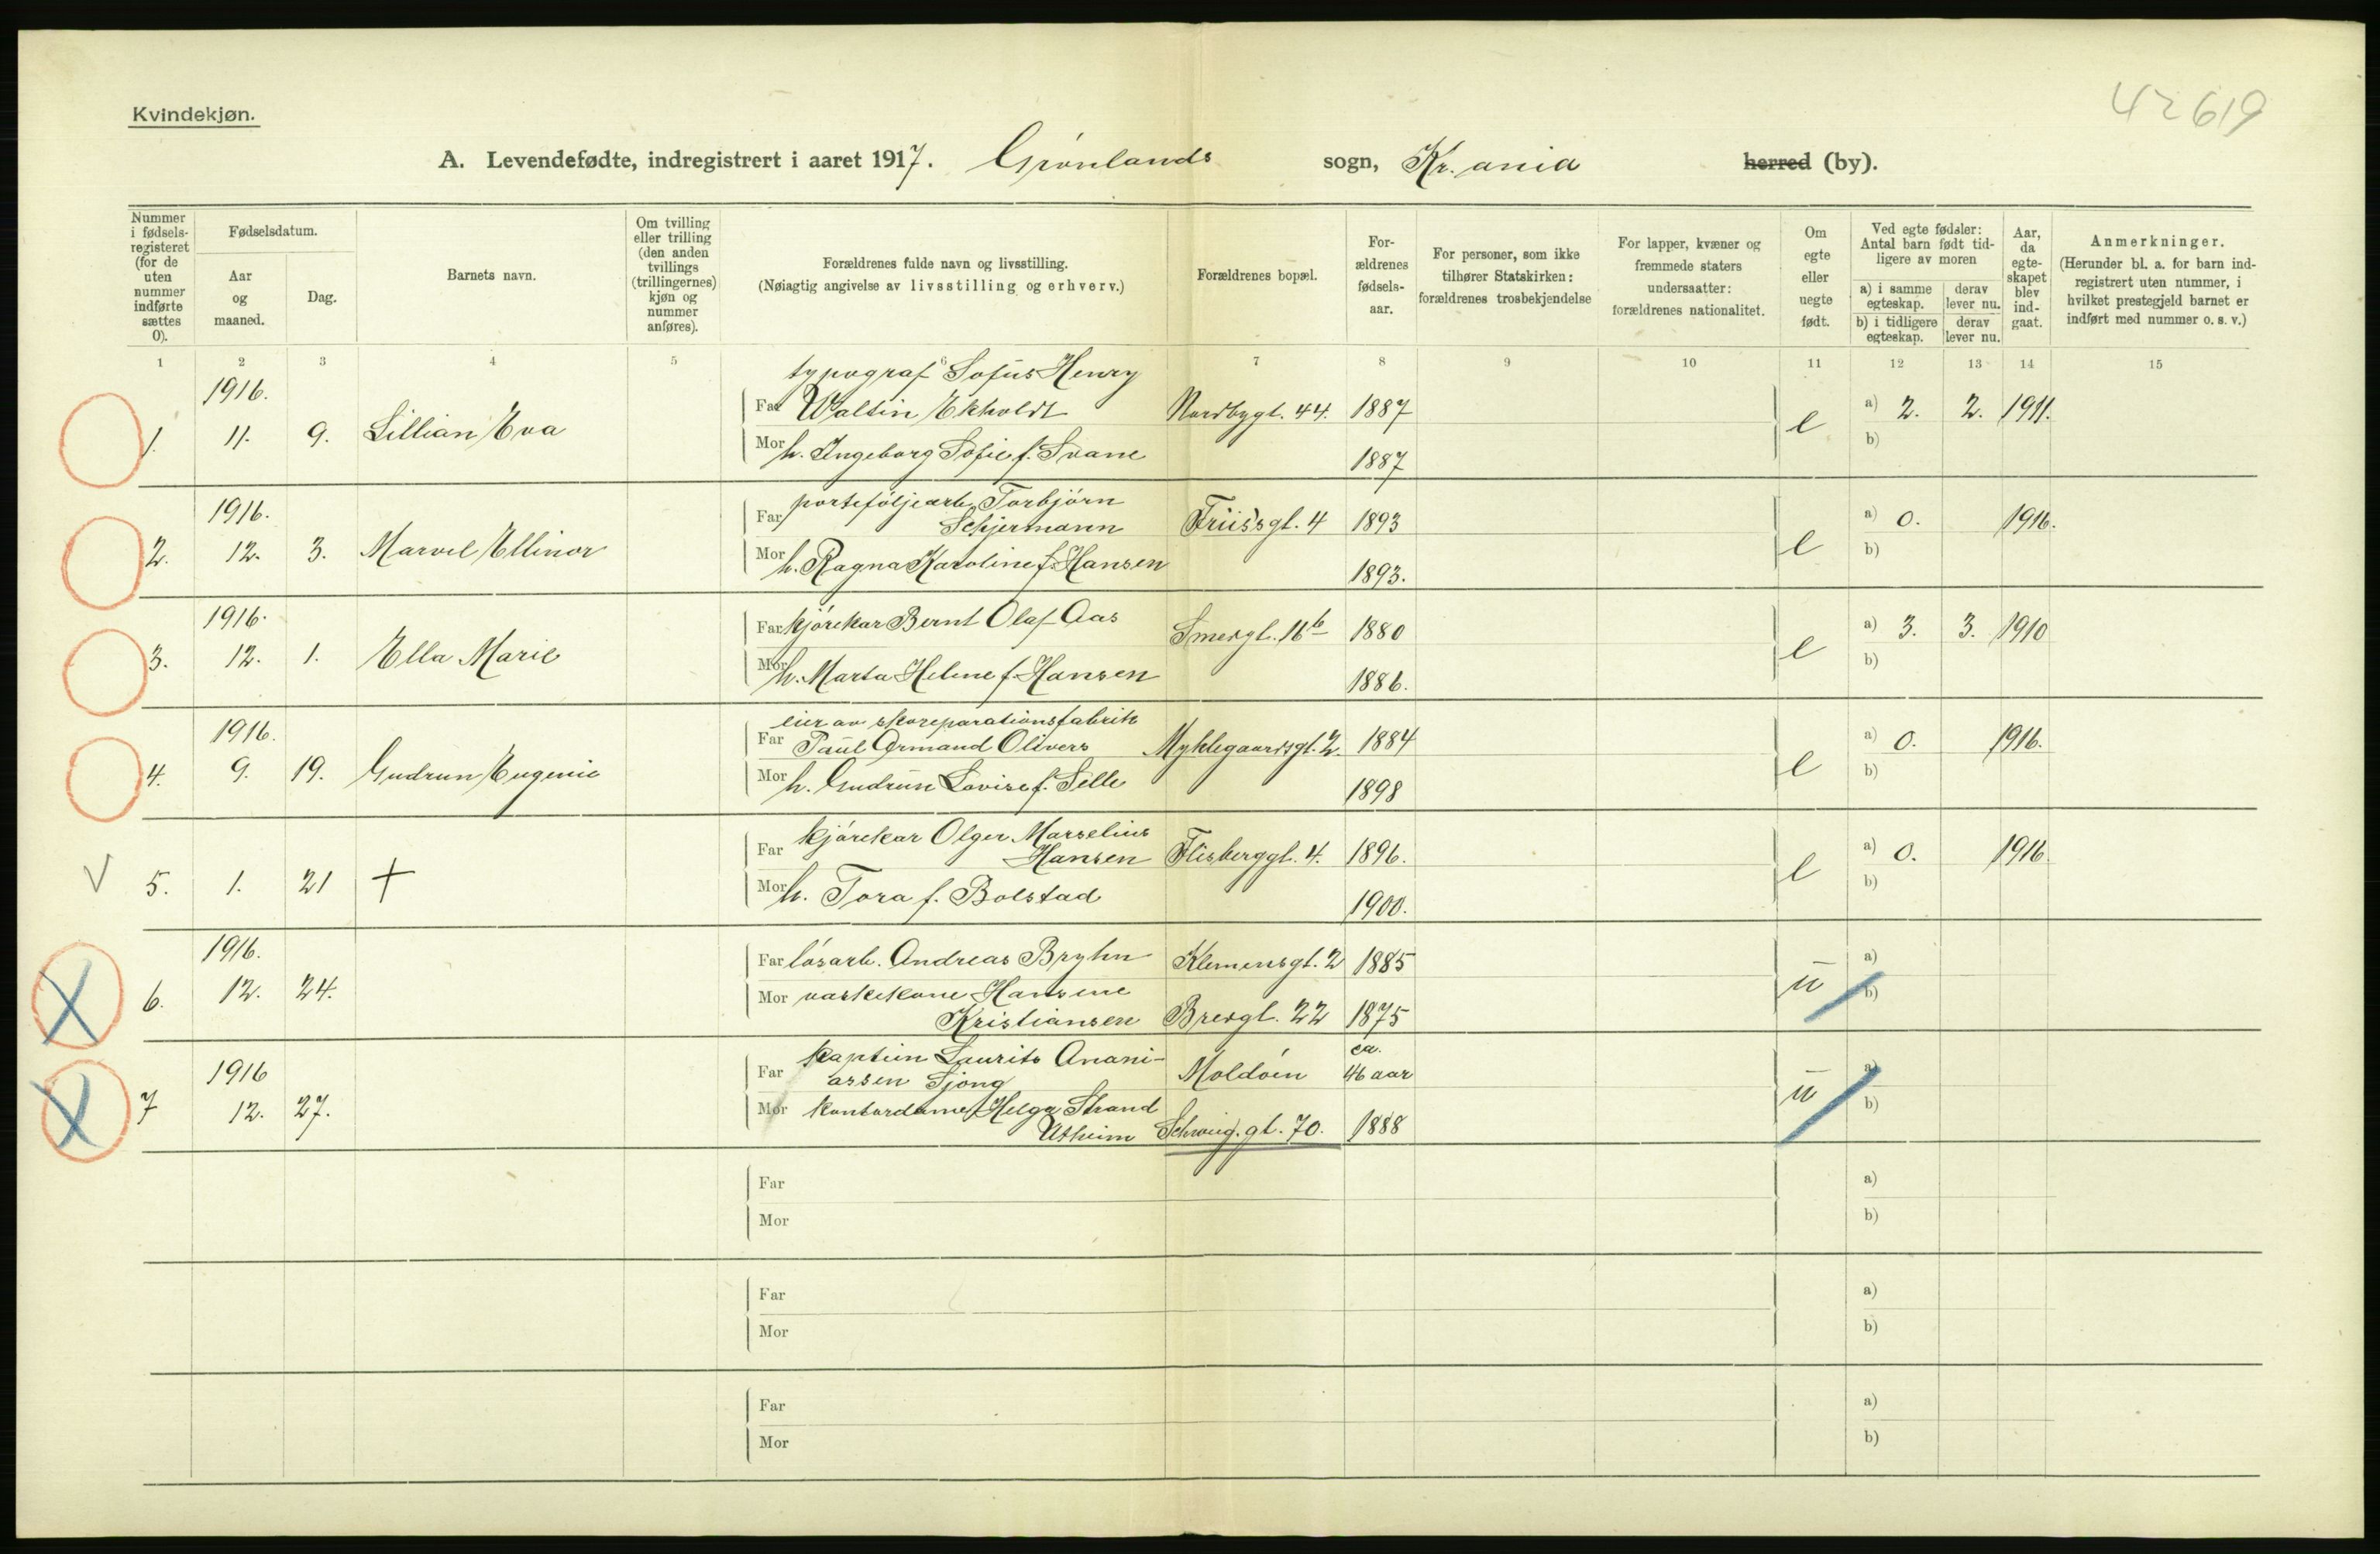 42619
Kvindekjøn.
A. Levendefødte, indregistrert i aaret 1917. Grønlands sogn, Kr.ania herred (by).
Nummer i fødsels-registeret (for de uten nummer indførte sættes 0).
Fødselsdatum.
Aar og maaned.
Dag.
Barnets navn.
Om tvilling eller trilling (den anden tvillings (trillingernes) kjøn og nummer anføres).
Forældrenes fulde navn og livsstilling.
(Nøiagtig angivelse av livsstilling og erhverv.)
Forældrenes bopæl.
For-ældrenes fødsels-aar.
For personer, som ikke tilhører Statskirken: forældrenes trosbekjendelse
For lapper, kvæner og fremmede staters undersaatter: forældrenes nationalitet.
Om egte eller uegte født.
Ved egte fødsler: Antal barn født tid-ligere av moren
a) i samme egteskap. derav lever nu.
b) i tidligere egteskap. derav lever nu.
Aar, da egte-skapet blev ind-gaat.
Anmerkninger.
(Herunder bl. a. for barn ind-registrert uten nummer, i hvilket prestegjeld barnet er indført med nummer o. s. v.)
1 2 3 4 5 6 7 8 9 10 11 12 13 14 15
typograf Sofus Henry
1916.
Far Waltin Ekholdt Nordbygt. 44. 1887 a) 2. 2. 1911.
1. 11. 9. Lillian Eva e b)
Mor h. Ingeborg Sofie f. Svane 1887
1916.
porteføljearb. Torbjörn
Far Schjermann Friisgt. 4 1893 a) 0. 1916.
2. 12. 3. Marvel Ellinor e b)
Mor h. Ragna Karoline f. Hansen 1893.
1916.
Far kjørekar Bernt Olaf Aas Smedgt. 16b 1880 a) 3. 3. 1910
3. 12. 1. Ella Marie e b)
Mor h. Marta Helene f. Hansen 1886.
eier av skoreparationsfabrik
1916.
Far Paul Armand Olivers Myklegaardsgt. 2. 1884 a) 0. 1916.
4. 9. 19. Gudrun Eugenie e b)
Mor h. Gudrun Lovise f. Selle 1898
kjørekar Olger Marselius
Far Hansen Flisberggt. 4. 1896. a) 0. 1916.
V 5. 1. 21 + e b)
Mor h. Tora f. Bolstad 1900.
1916.
Far løsarb. Andreas Bryhn Klemensgt. 2 1885 a)
6. 12. 24. u b)
Mor vaskekone Hansine
Kristiansen Bredgt. 22 1875
kaptein Laurits Anani- ca.
1916
Far assen Sjong Moldöen 46 aar a)
7 12. 27. u b)
Mor kontordame Helga Strand
Utheim Schweig.gt. 70. 1888
Far a)
Mor b)
Far a)
Mor b)
Far a)
Mor b)